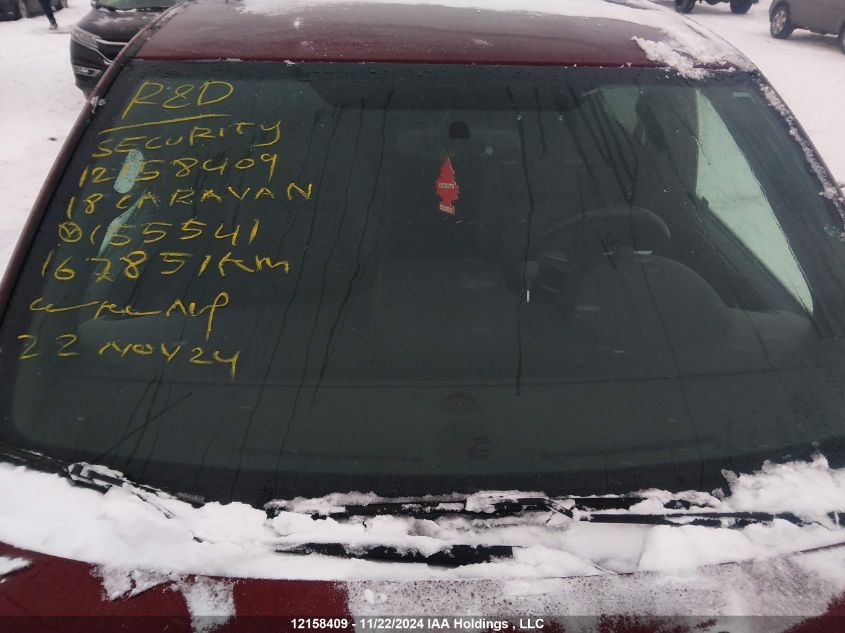 R&D
SECURITY
12158409
18 CARAVAN
155541
167851 Km
22 NOV 24
12158409 - 11/22/2024 IAA Holdings , LLC